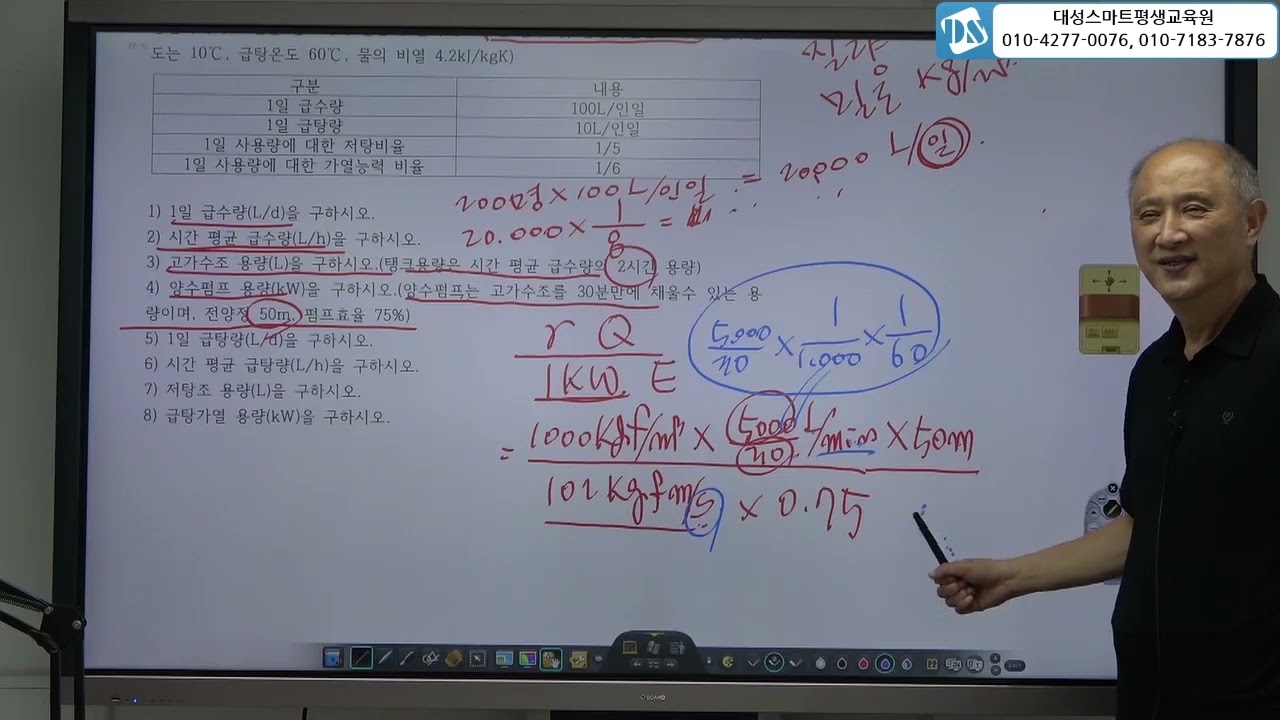 대성스마트평생교육원
010-4277-0076, 010-7183-7876
DS
도는 10℃, 급탕온도 60℃, 물의 비열 4.2kJ/kgK)
구분 내용
1일 급수량 100L/인일
1일 급탕량 10L/인일
1일 사용량에 대한 저탕비율 1/5
1일 사용량에 대한 가열능력 비율 1/6
질량
밀도 kg/m³
200명 × 100 L/인일 = 20,000 L/일
20.000 × 1/8 =
1) 1일 급수량(L/d)을 구하시오.
2) 시간 평균 급수량(L/h)을 구하시오.
3) 고가수조 용량(L)을 구하시오.(탱크용량은 시간 평균 급수량의 2시간 용량)
4) 양수펌프 용량(kW)을 구하시오.(양수펌프는 고가수조를 30분만에 채울수 있는 용
량이며, 전양정 50m, 펌프효율 75%)
5) 1일 급탕량(L/d)을 구하시오.
6) 시간 평균 급탕량(L/h)을 구하시오.
7) 저탕조 용량(L)을 구하시오.
8) 급탕가열 용량(kW)을 구하시오.
r Q
1KW. E
5,000/30 × 1/1,000 × 1/60
= 1000kgf/m³ × 5000/30 L/min × 50m
102 kgf m/s × 0.75
BOARD